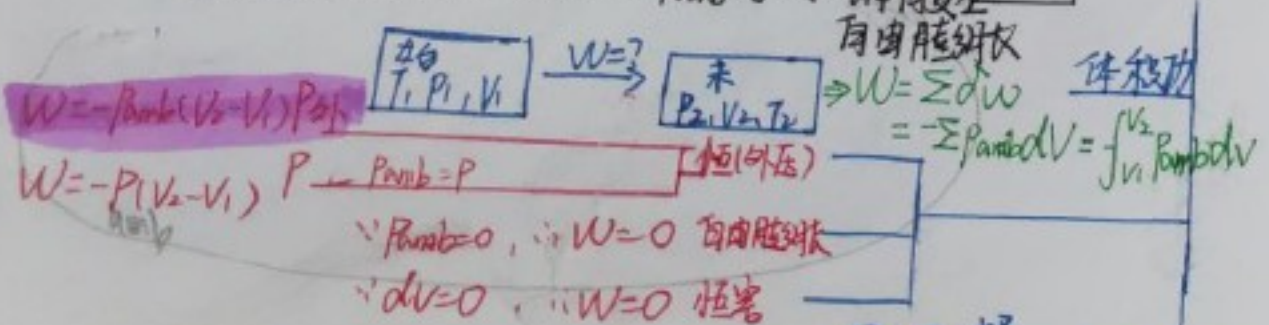 自由膨胀
体积功
始
T₁ P₁, V₁
W=?
末
P₂, V₂, T₂
⇒W=Σdw
=-Σpambdv=∫V₁V₂ Pambdv
W=-Pamb(V₂-V₁) P外
W=-P(V₂-V₁) P Pamb=P 恒(外压)
∵Pamb=0, ∴W=0 自由膨胀
∵dv=0, ∴W=0 恒容